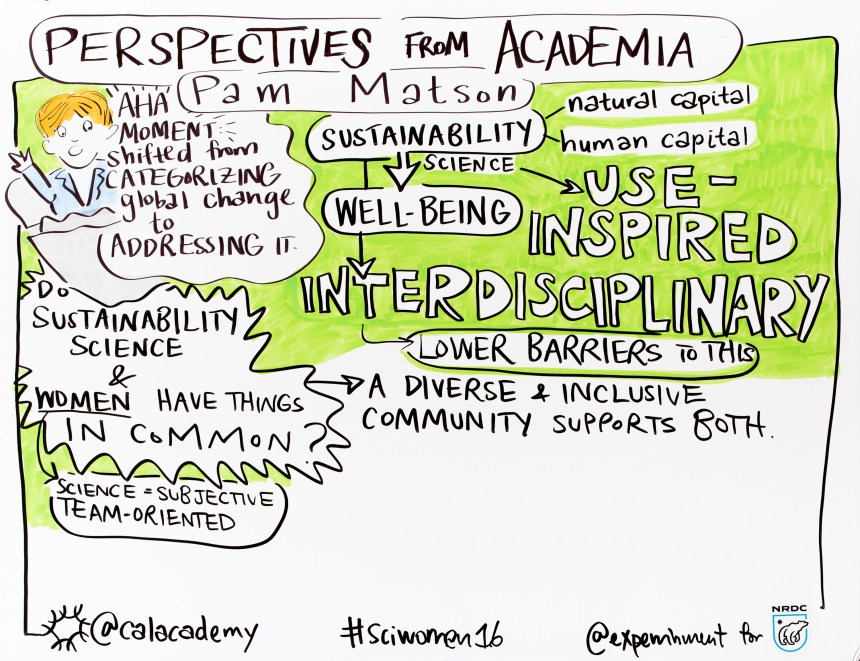 PERSPECTIVES FROM ACADEMIA
Pam Matson
AHA
MOMENT:
shifted from
CATEGORIZING
global change
to
ADDRESSING IT.
SUSTAINABILITY
natural capital
human capital
SCIENCE
USE-
INSPIRED
WELL-BEING
INTERDISCIPLINARY
LOWER BARRIERS TO THIS
DO
SUSTAINABILITY
SCIENCE
&
WOMEN HAVE THINGS
IN COMMON?
A DIVERSE & INCLUSIVE
COMMUNITY SUPPORTS BOTH.
SCIENCE = SUBJECTIVE
TEAM-ORIENTED
@calacademy
#sciwomen16
@experrinment for
NRDC